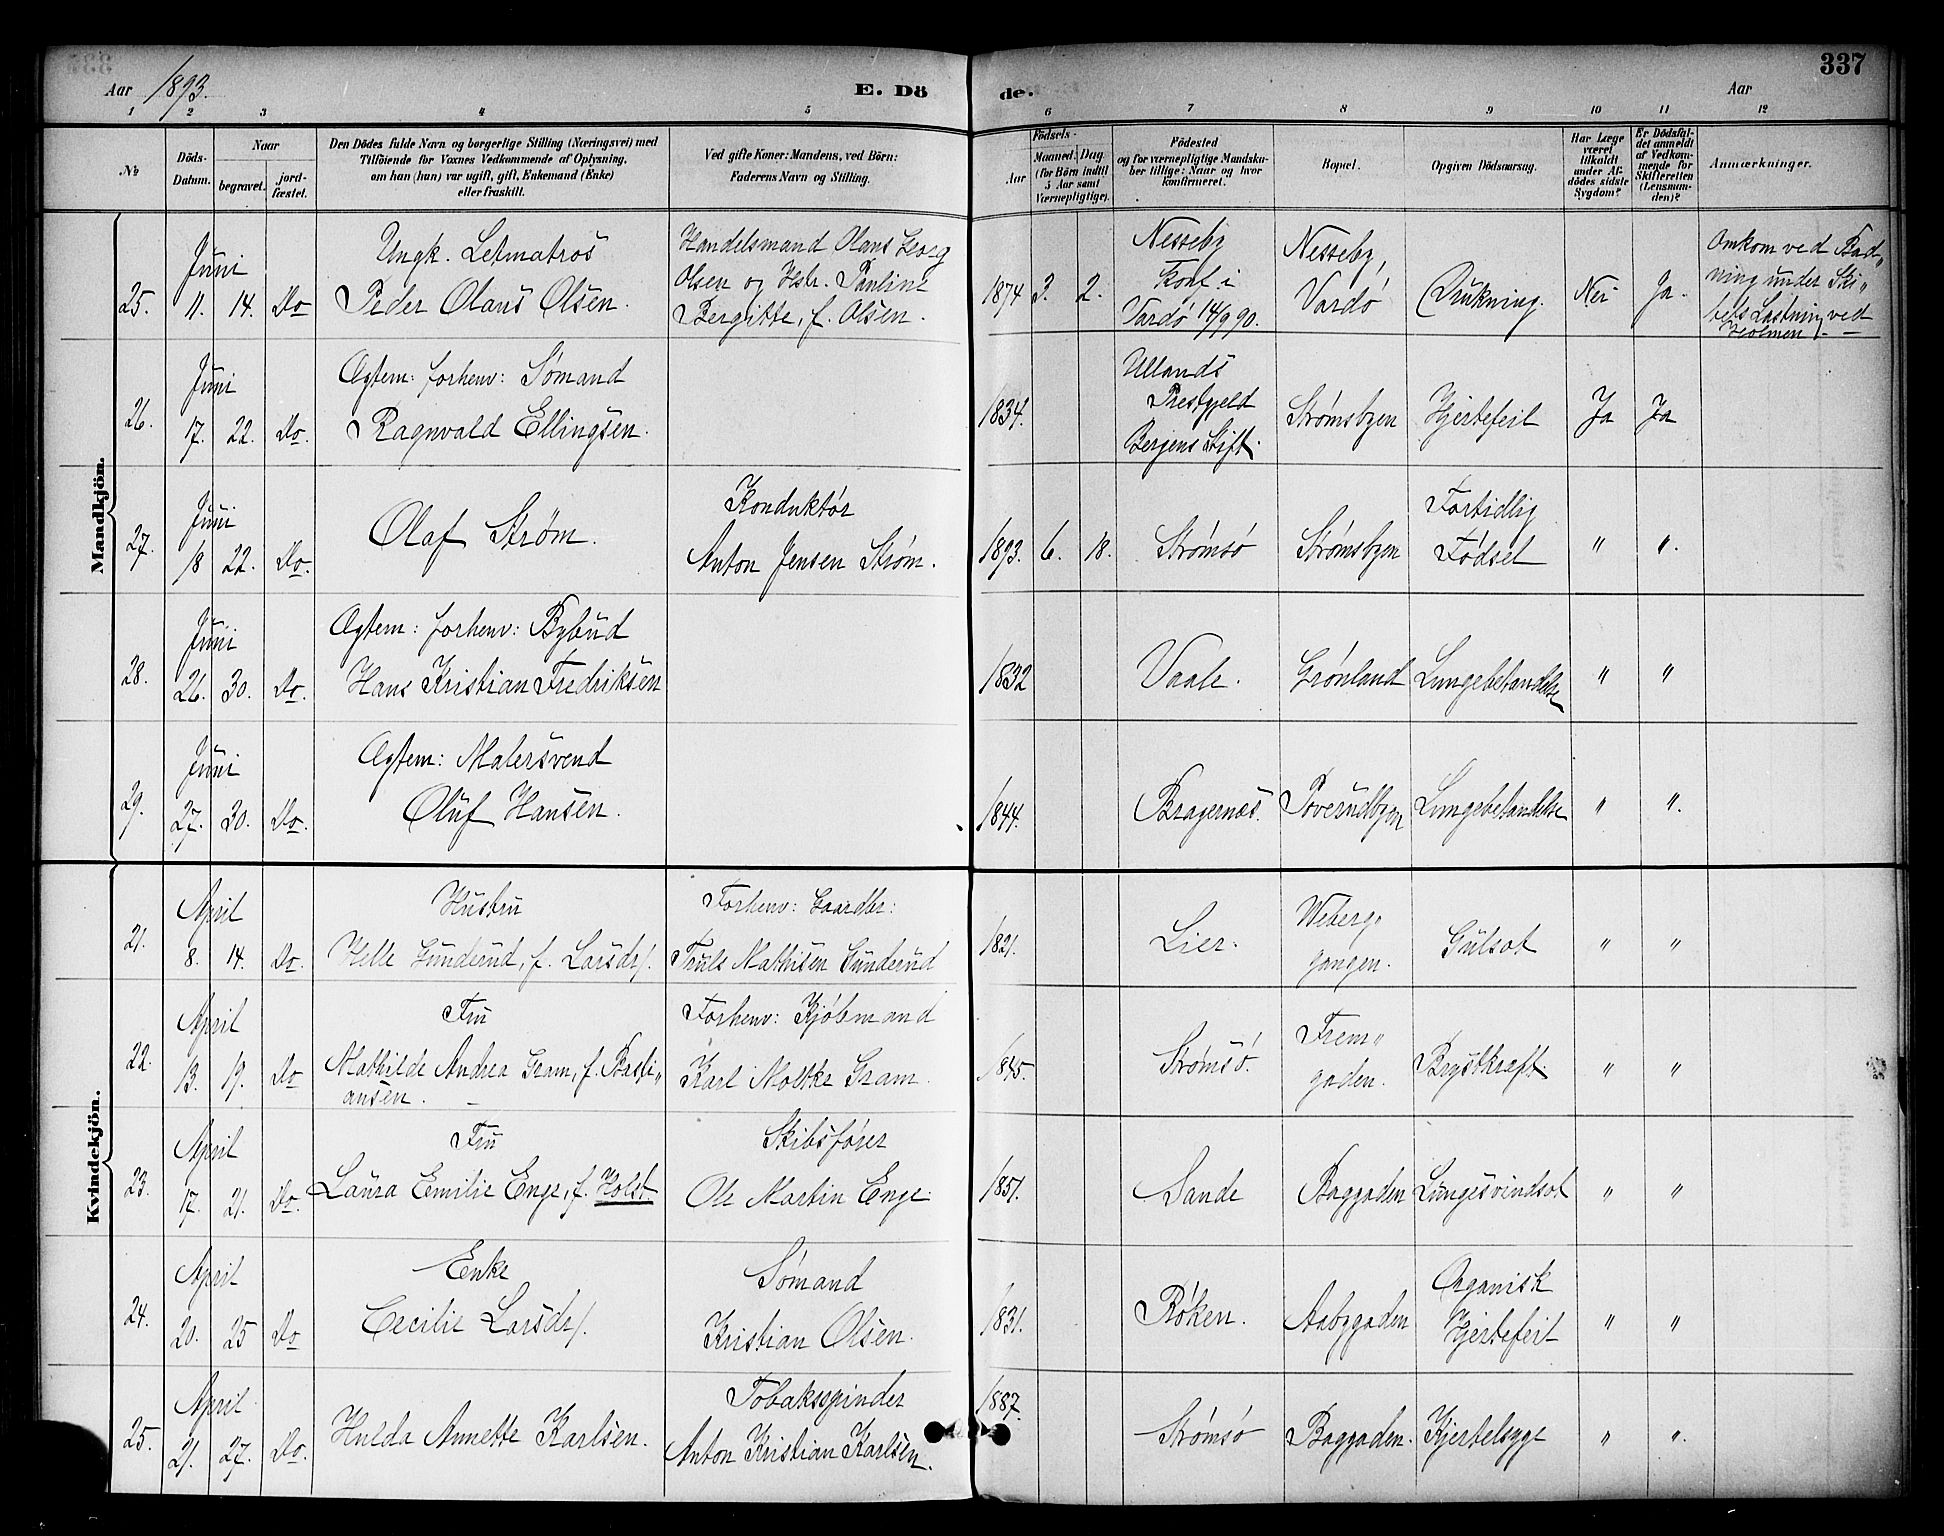 337
Aar 1893.
E. Dö de.
Aar
1 2 3 4 5 6 7 8 9 10 11 12
№
Döds-Datum.
Naar
begravet.
jord-fæstet.
Den Dödes fulde Navn og borgerlige Stilling (Næringsvei) med
Tilföiende for Voxnes Vedkommende af Oplysning,
om han (hun) var ugift, gift, Enkemand (Enke)
eller fraskilt.
Ved gifte Koner: Mandens, ved Börn:
Faderens Navn og Stilling.
Födsels-
Aar
Maaned. Dag
(for Börn indtil
5 Aar samt
Værnepligtige).
Födested
og for værnepligtige Mandsku-
ber tillige: Naar og hvor
konfirmeret.
Bopæl.
Opgiven Dödsaarsag.
Har Læge
været
tilkaldt
under Af-
dödes sidste
Sygdom?
Er Dödsfal-
det anmeldt
af Vedkom-
mende for
Skifteretten
(Lensman-
den)?
Anmærkninger.
Mandkjön.
25. Juni 11. 14. Do
Ungk. Letmatros
Peder Olaus Olsen.
Handelsmand Olaus Georg
Olsen og Hstr. Pauline
Bergitte, f. Olsen.
1874 3. 2.
Nesseby
Konf i
Vardø 14/9 90.
Nesseby,
Vardø
Drukning. Nei Ja.
Omkom ved Bad„
ning under Ski„
bets Lastning ved
Holmen
26. Juni 17. 22. Do.
Ægtem: forhenv: Sømand
Ragnvald Ellingsen.
1834.
Ullands
Prestgjeld
Bergens Stift.
Strømsbyen Hjertefeil Ja Ja
27. Juni 18 22. Do.
Olaf Strøm.
Konduktør
Anton Jensen Strøm.
1893. 6. 18. Strømsø Strømsbyen
Fortidlig
Fødsel
" "
28. Juni 26. 30. Do.
Ægtem: forhenv: Bybud
Hans Kristian Fredriksen
1832 Vaale. Grønland Lungebetændelse " "
29. Juni 27. 30. Do.
Ægtem: Malersvend
Oluf Hansen.
1844. Bragernæs. Poverudbyen Lungebetændelse " "
Kvindekjön.
21. April 8. 14. Do.
Hustru
Helle Gunderud, f. Larsdr/.
Forhenv: Gaardbr:
Truls Mathisen Gunderud
1821. Lier.
Weberg„
gangen.
Gulsot " "
22. April 13. 19. Do
Fru
Mathilde Andrea Gram, f. Basti„
ansen.
Forhenv: Kjøbmand
Karl Moltke Gram.
1845. Strømsø.
Frem„
gaden.
Brystkræft. " "
23. April 17. 21. Do.
Fru
Laura Emilie Enge, f. Holst
Skibsfører
Ole Martin Enge.
1851. Sande Baggaden Lungesvindsot " "
24. April 20. 25 Do
Enke
Cecilie Larsdr/.
Sømand
Kristian Olsen.
1831. Røken. Aabygaden
Organisk
Hjertefeil
" "
25. April 21. 27. Do.
Hulda Annette Karlsen.
Tobaksspinder
Anton Kristian Karlsen.
1887. Strømsø Baggaden. Kjertelsyge " "